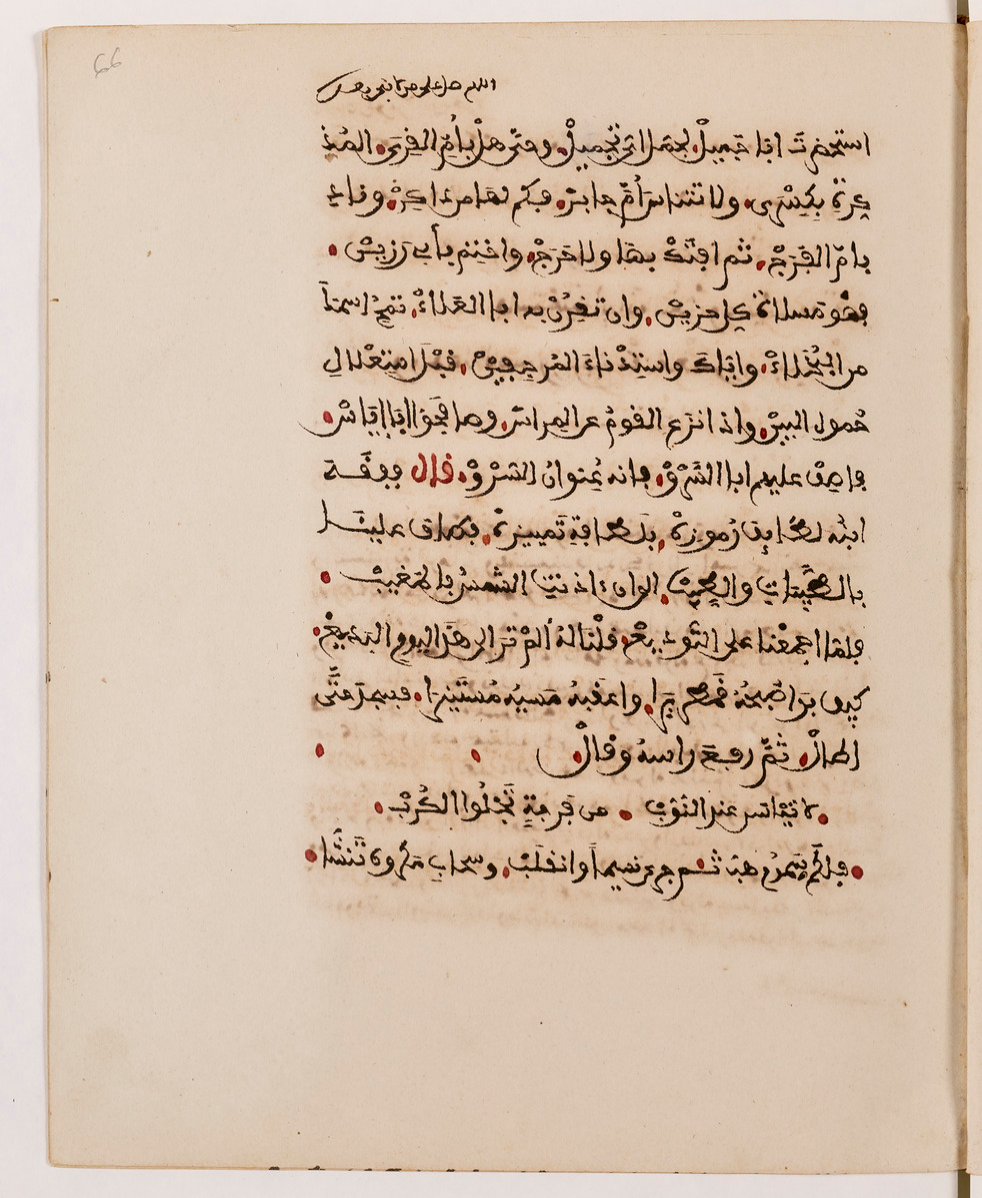 66
اللهم صل على من لا نبي بعده
استحضرت ابا جميل، فجمل اي تجميل، وحي هل بام القرى، المذ
كرة بكسرى، ولا تتناس ام جابر، فكم لها من ذاكر، وناد
بام الفرج، ثم افتك بها ولا حرج، واختم بابي رزين،
فهو مسلاة كل حزين، وان تقرن به ابا العلاء، تمح اسمك
من البخلاء، واياك واستدناء المرجفين، قبل استقلال
حمول البين، واذا نزع القوم عن المراس، وصافحوا ابا اياس،
فاطف عليهم ابا السرو، فانه عنوان السرو، قال ففقه
ابنه لطائف رموزه، بلطافة تمييزه، فطاف علينا
بالطيبات والطيب، الى ان ءاذنت الشمس بالمغيب،
فلما اجمعنا على التوديع، قلنا له الم تر الى هذا اليوم البديع،
كيف بدا صبحه قمطريرا، واعقبه مسيه مستنيرا، فسجد حتى
اطال، ثم رفع راسه وقال
لا تياسن عند النوب من فرجة تجلوا الكرب
فلكم سموم هب ثم جرى نسيما وانقلب، وسحاب مكروه تنشا